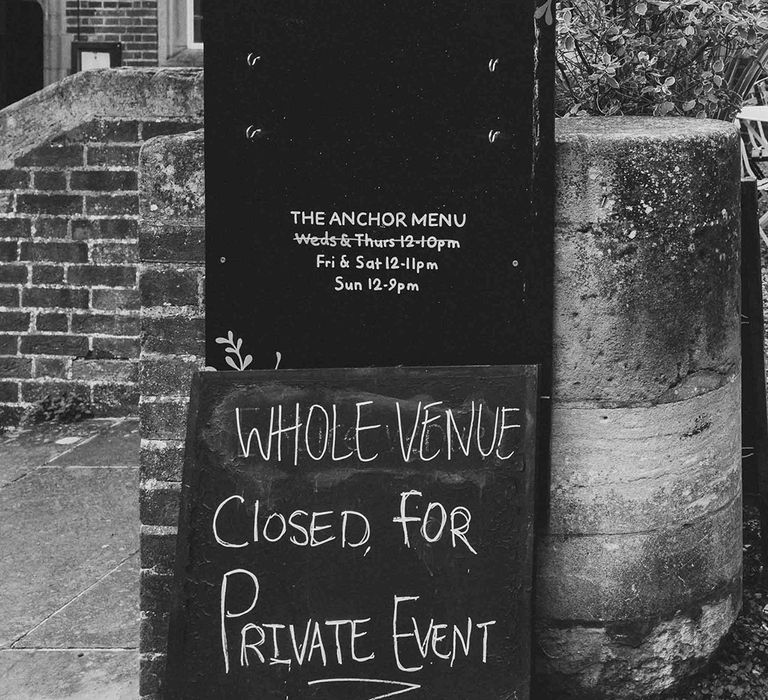 THE ANCHOR MENU
Weds & Thurs 12-10pm
Fri & Sat 12-11pm
Sun 12-9pm
WHOLE VENUE
CLOSED, FOR
PRIVATE EVENT